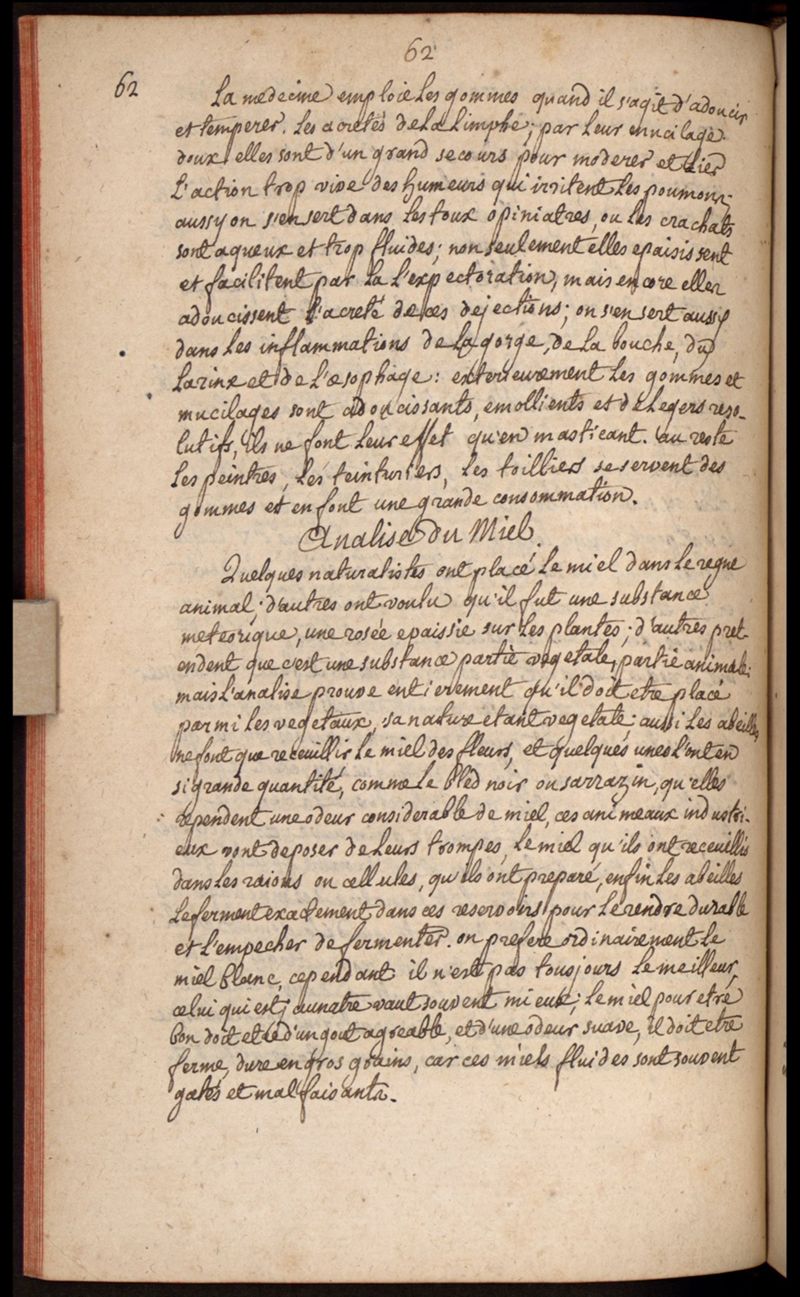 62
62
La medecine emploie les gommes quand il s'agit d'adoucir
et temperer. les acretés de la limphe; par leur mucilage
doux elles sont d'un grand secours pour moderer et lier
l'action trop vive des humeurs qui irritent les poumons;
aussy on s'en sert dans les toux opiniatres, ou les crachats
sont aqueux et trop fluides; non seulement elles epaisissent
et facilitent par la l'expectoration, mais encore elles
adoucissent l'acreté de ces dejections; on s'en sert aussy
dans les inflammations de la gorge, de la bouche, du
larinx et de l'œsophage: exterieurement les gommes et
mucilages sont adoucissants, emollients et de legers reso-
lutifs, ils ne font leur effet qu'en masticant. au reste
les peintres, les teinturiers, les toilliers se servent des
gommes et en font une grande consommation.
Analise du Miel.
Quelques naturalistes ont placé le miel dans le regne
animal; d'autres ont voulu qu'il fut une substance
meteorique, une rosée epaissie sur les plantes; d'autres pret-
endent que c'est une substance partie vegetale, partie animale;
mais l'analise prouve entierement qu'il doit etre placé
parmi les vegetaux, sa nature etant vegetale; aussi les abeilles
ne font que receuillir le miel des fleurs, et quelques unes l'ont en
si grande quantité, comme le bled noir ou sarrazin, qu'elles
rependent une odeur considerable de miel, ces animeaux industri-
eux vont deposer de leurs trompes, le miel qu'ils ont receuillis
dans les raions ou cellules, qu'ils ont preparé, enfin les abeilles
le ferment exactement dans ces reservoirs pour le rendre durable
et l'empecher de fermenter. on prefere ordinairement le
miel blanc, cependant il n'est pas tousjours le meilleur,
celui qui est jaunatre vaut souvent mieux; le miel pour etre
bon doit etre d'un gout agreable, et d'une odeur suave, il doit etre
ferme, dure en gros grains, car ces miels fluides sont souvent
gatés et malfaisants.